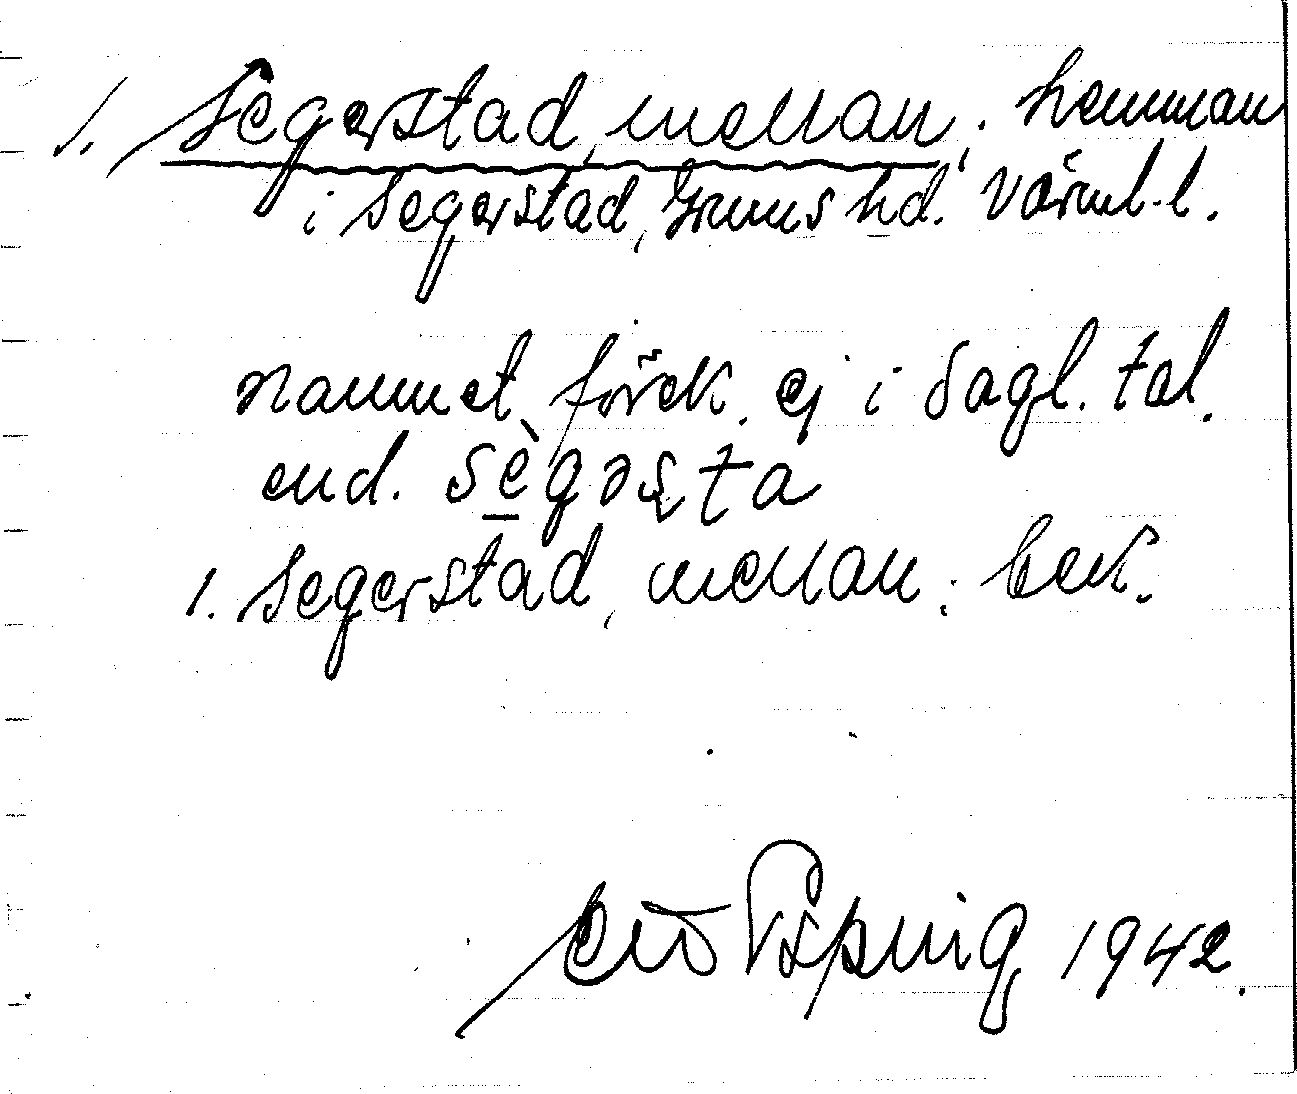 1. Segerstad, mellan; hemman
i Segerstad, Grums hd. Värml. l.
namnet förek. ej i dagl. tal.
end. sè̱gəsta
1. Segerstad, mellan; bek.
1942.